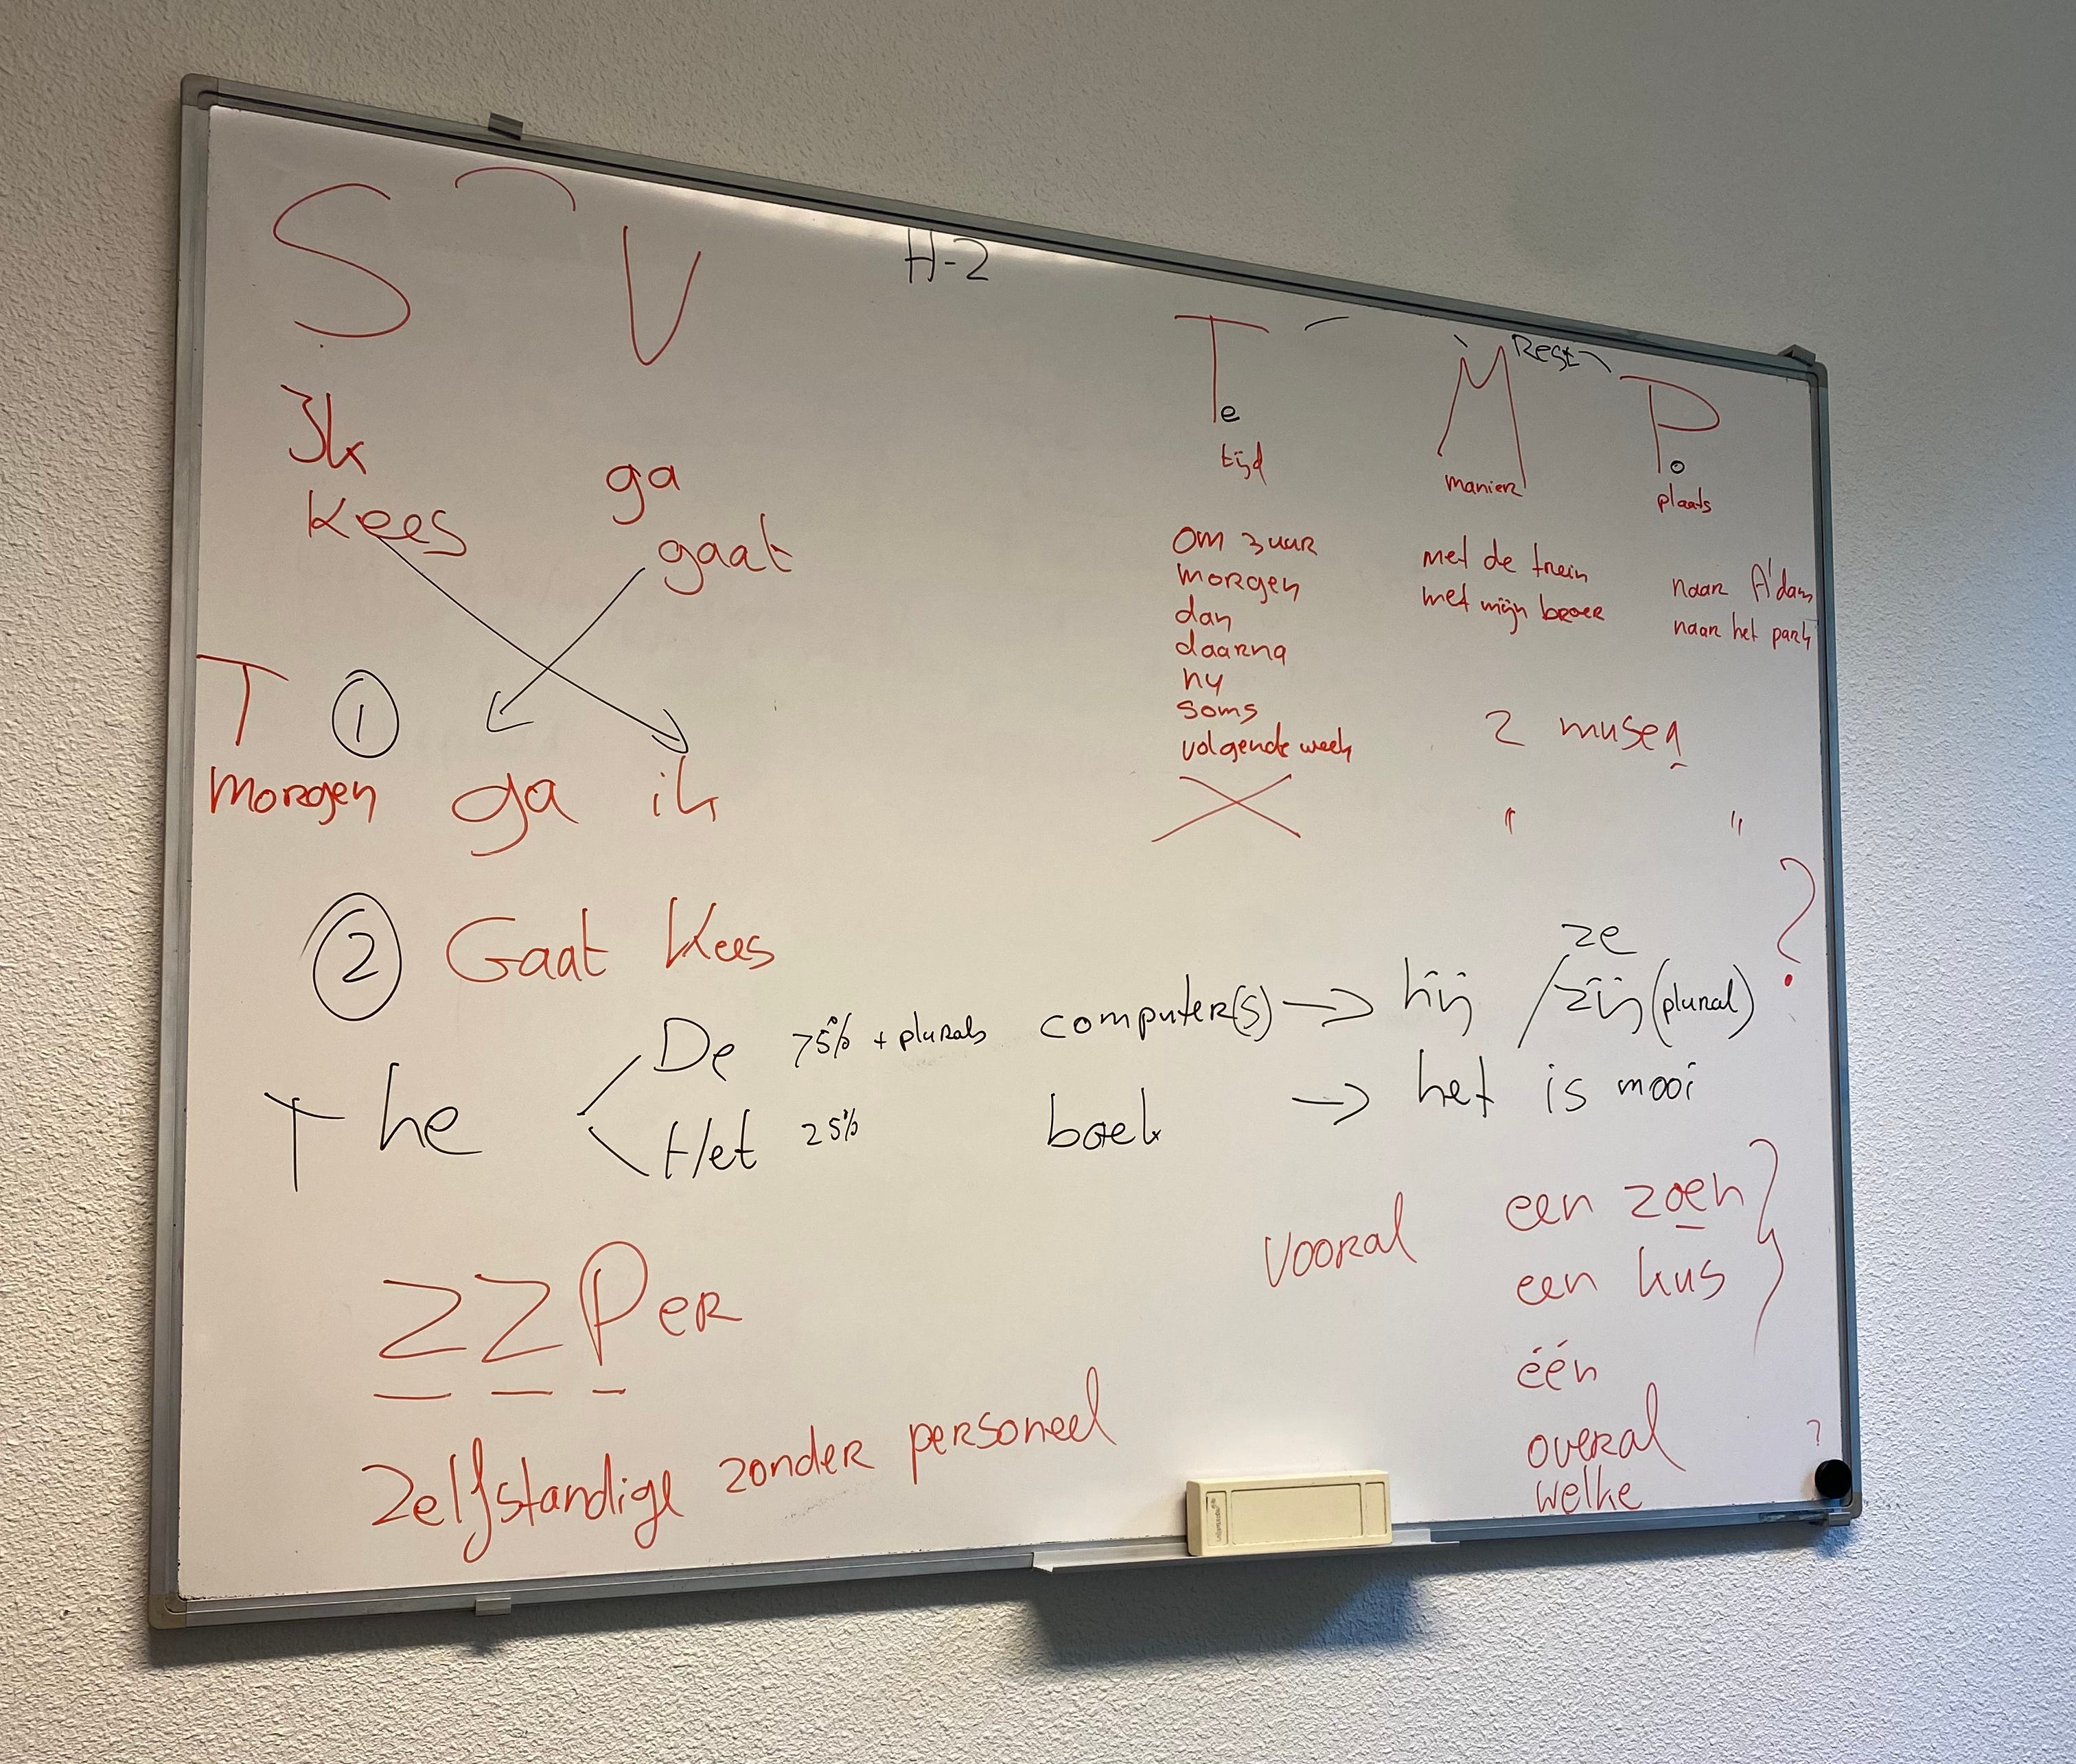 S V H-2
T M Rest P
e o
tijd manier plaats
Ik ga
Kees gaat
om 3 uur met de trein naar A'dam
morgen met mijn broer naar het park
dan
daarna
nu
soms
volgende week 2 musea
T 1
morgen ga ik " "
2 Gaat Kees ?
The De 75% + plurals computer(s) → hij / ze zij (plural)
Het 25% boek → het is mooi
ZZPer
Zelfstandige zonder personeel
vooral een zoen
een kus
één
overal ?
welke